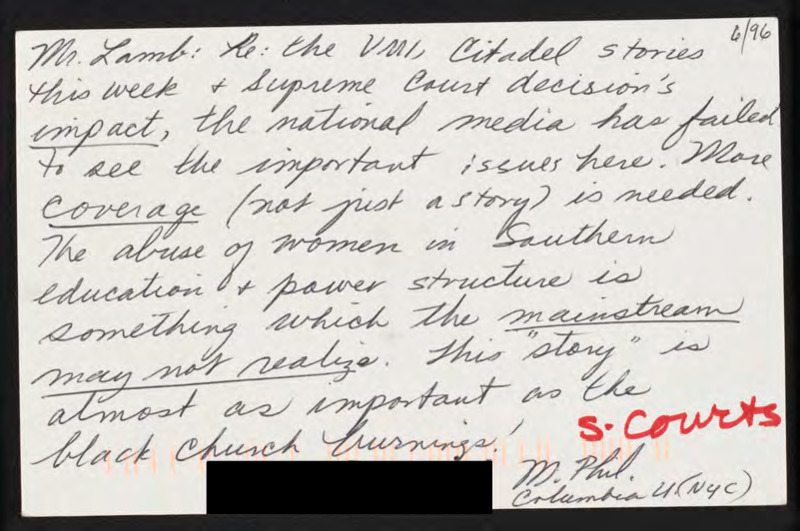 6/96
Mr. Lamb: Re: the VMI, Citadel stories
this week + Supreme Court decision's
impact, the national media has failed
to see the important issues here. More
coverage (not just a story) is needed.
The abuse of women in Southern
education + power structure is
something which the mainstream
may not realize. This "story" is
almost as important as the
black church burnings!
S. Courts
M. Phil.
Columbia U (NYC)